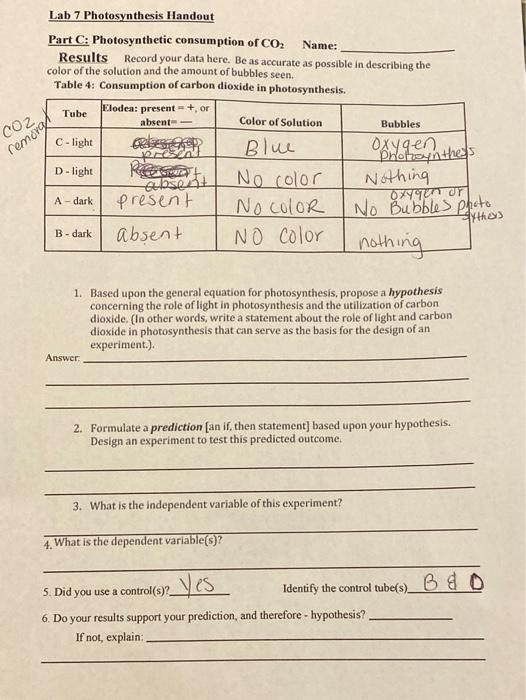 Lab 7 Photosynthesis Handout
Part C: Photosynthetic consumption of CO₂ Name:
Results Record your data here. Be as accurate as possible in describing the
color of the solution and the amount of bubbles seen.
Table 4: Consumption of carbon dioxide in photosynthesis.
CO2 removal
Tube Elodea: present = +, or absent= — Color of Solution Bubbles
C - light present Blue Oxygen
D - light absent No color Nothing
A - dark present No coloR No Bubbles oxygen or photo
B - dark absent NO Color nothing
1. Based upon the general equation for photosynthesis, propose a hypothesis
concerning the role of light in photosynthesis and the utilization of carbon
dioxide. (In other words, write a statement about the role of light and carbon
dioxide in photosynthesis that can serve as the basis for the design of an
experiment.).
Answer:
2. Formulate a prediction [an if, then statement] based upon your hypothesis.
Design an experiment to test this predicted outcome.
3. What is the independent variable of this experiment?
4. What is the dependent variable(s)?
5. Did you use a control(s)? Yes Identify the control tube(s) B & D
6. Do your results support your prediction, and therefore - hypothesis?
If not, explain: